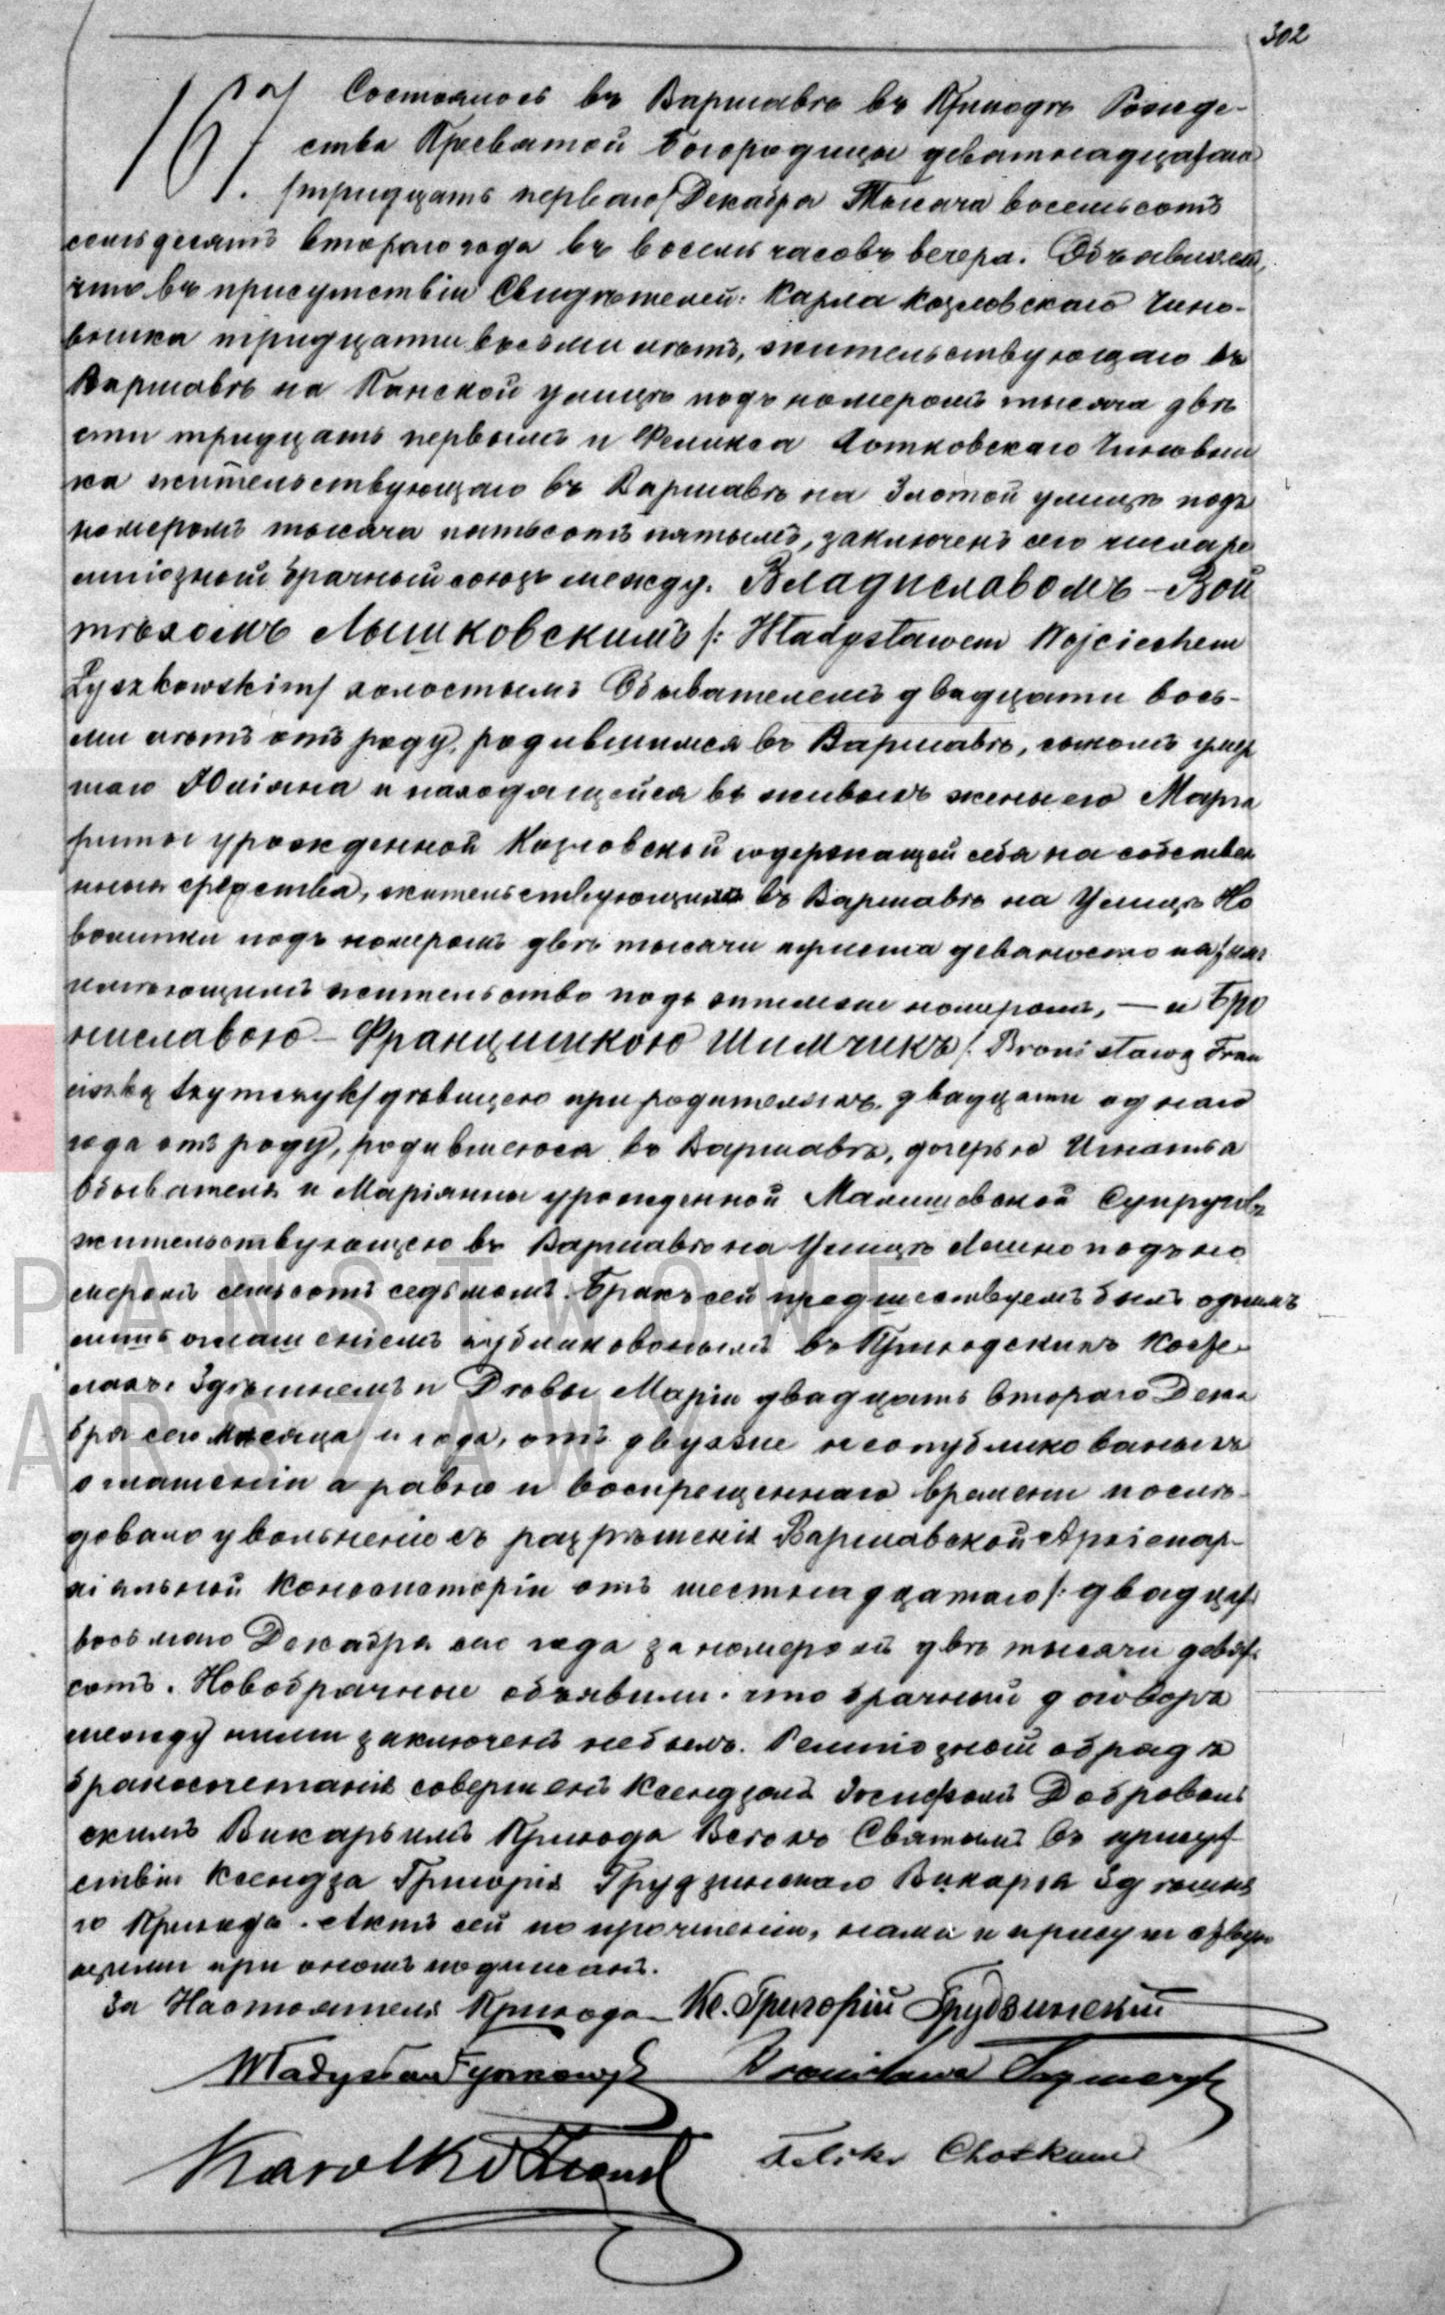 302
167. Состоялось въ Варшавѣ въ Приходѣ Рожде-
ства Пресвятой Богородицы девятнадцатаго
/тридцать перваго/ Декабря Тысяча восемьсотъ
семьдесятъ втораго года въ восемь часовъ вечера. Объявляемъ,
что въ присутствіи Свидѣтелей: Карла Козловскаго Чино-
вника тридцати восьми лѣтъ, жительствующаго въ
Варшавѣ на Панской улицѣ подъ номеромъ тысяча двѣ
сти тридцать первымъ и Феликса Хотковскаго Чиновни
ка жительствующаго въ Варшавѣ на Злотой улицѣ подъ
номеромъ тысяча пятьсотъ пятымъ, заключенъ сего числа ре
лигіозный брачный союзъ между: Владиславомъ-Вой
тѣхомъ Лышковскимъ /: Władysławem Wojciechem
Łyszkowskim/ холостымъ Обывателемъ двадцати вось-
ми лѣтъ отъ роду, родившимся въ Варшавѣ, сыномъ умер
шаго Юліяна и находящейся въ живыхъ жены его Марга
риты урожденной Козловской содержащей себя на собствен
ныя средства, жительствующимъ въ Варшавѣ на Улицѣ Но
волипки подъ номеромъ двѣ тысячи триста девяносто
жительство подъ номеромъ, — и Бро
ниславою-Францишкою Шимчикъ /: Bronisławą Fran
ciszką Szymczyk/ дѣвицею при родителяхъ, двадцати одного
года отъ роду, родившеюся въ Варшавѣ, дочерью Игнатья
Обывателя и Маріянны урожденной Малишевской Супруговъ
жительствующею въ Варшавѣ на Улицѣ Лешно подъ но
меромъ семьсотъ седьмомъ. Бракъ сей предшествуемъ былъ однимъ
лишь оглашеніемъ публикованнымъ въ Приходскихъ Косте-
лахъ: Здѣшнемъ и Дѣвы Маріи двадцать втораго Дека
бря сего мѣсяца и года, отъ двухъ неопубликованыхъ
оглашеніи а равно и воспрещеннаго времени послѣ-
довало увольненіе съ разрѣшенія Варшавской Архіепар-
хіяльной Консисторіи отъ шестнадцатаго /: двадцать
восьмаго Декабря сего года за номеромъ двѣ тысячи девять
сотъ. Новобрачные объявили: что брачный договоръ
между ними заключенъ небылъ. Религіозный обрядъ
бракосочетанія совершенъ Ксендзомъ Іосифомъ Доброволь
скимъ Викарьимъ Прихода Всѣхъ Святыхъ въ присут
ствіи Ксендза Григорія Грудзинскаго Викарія Здѣшня
го Прихода. Актъ сей по прочтеніи, нами и присутствую
щими при ономъ подписанъ.
За Настоятеля Прихода Кс. Григорій Грудзинскій
Władysław Łyszkowski Bronisława Szymczyk
Karol Kozłowski Feliks Chotkowski
PAŃSTWOWE
ARSZAWY